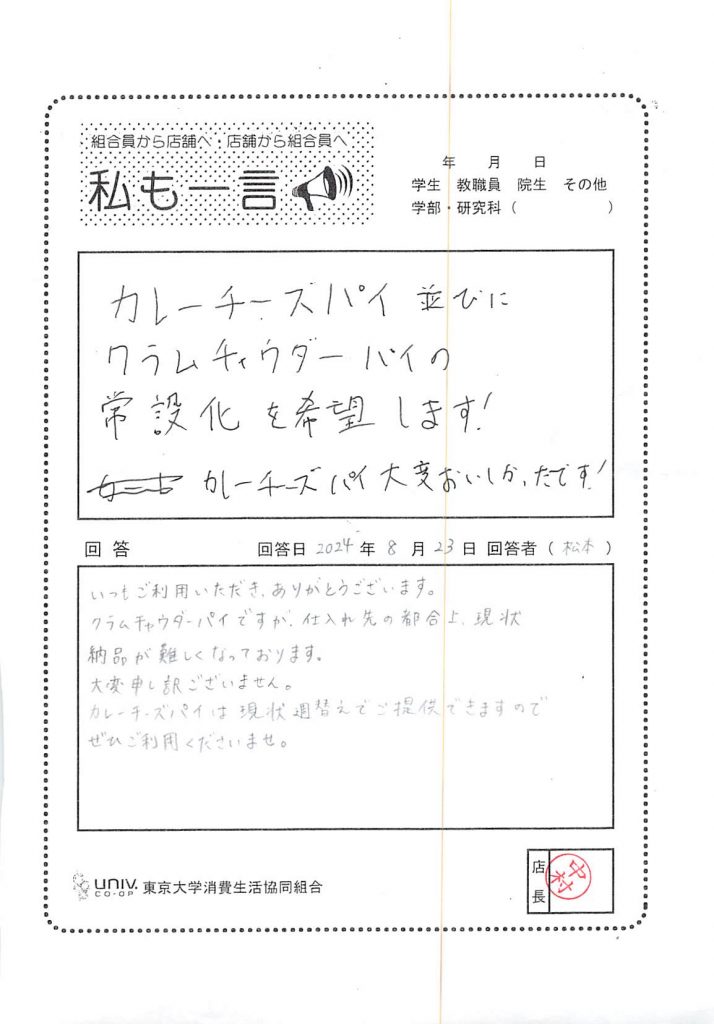 組合員から店舗へ・店舗から組合員へ
私も一言
年 月 日
学生 教職員 院生 その他
学部・研究科( )
カレーチーズパイ 並びに
クラムチャウダーパイの
常設化を希望します!
カレーチーズパイ大変おいしかったです!
回答 回答日 2024 年 8 月 23 日 回答者 ( 松本 )
いつもご利用いただき、ありがとうございます。
クラムチャウダーパイですが、仕入れ先の都合上、現状
納品が難しくなっております。
大変申し訳ございません。
カレーチーズパイは現状週替えでご提供できますので
ぜひご利用くださいませ。
UNIV. CO-OP 東京大学消費生活協同組合
店長 中村